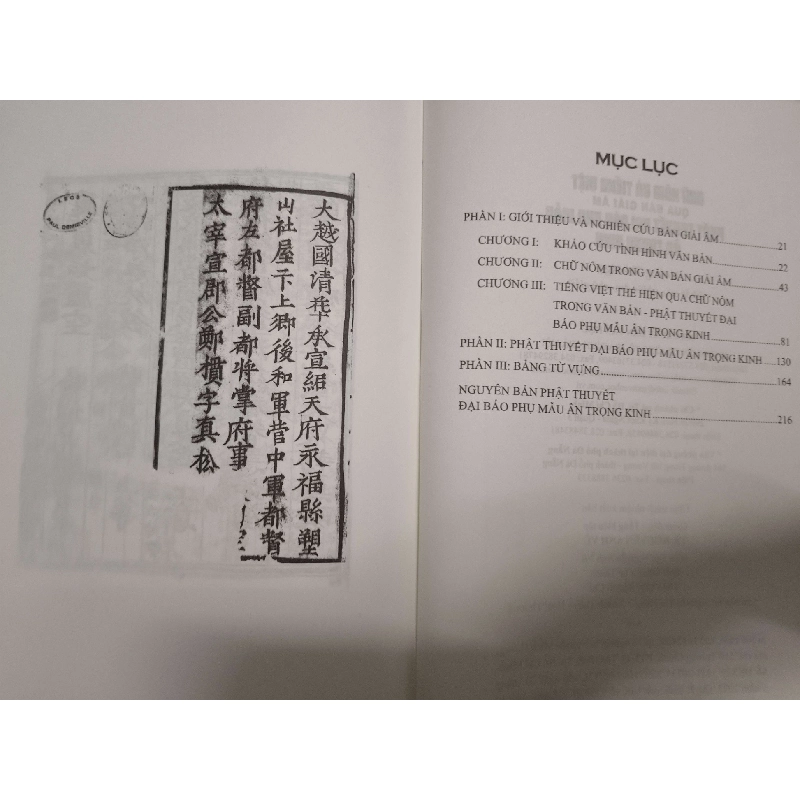 大越國清華承宣紹天府永福縣塑
山社屋下上鄉後和軍营中軍都督
府左都督副都将掌府事
太宰宣郡公鄭檟字真松
PAUL DEMIÉVILLE
MỤC LỤC
PHẦN I: GIỚI THIỆU VÀ NGHIÊN CỨU BẢN GIẢI ÂM 21
CHƯƠNG I: KHẢO CỨU TÌNH HÌNH VĂN BẢN 22
CHƯƠNG II: CHỮ NÔM TRONG VĂN BẢN GIẢI ÂM 43
CHƯƠNG III: TIẾNG VIỆT THỂ HIỆN QUA CHỮ NÔM
TRONG VĂN BẢN - PHẬT THUYẾT ĐẠI
BÁO PHỤ MẪU ÂN TRỌNG KINH 81
PHẦN II: PHẬT THUYẾT ĐẠI BÁO PHỤ MẪU ÂN TRỌNG KINH 130
PHẦN III: BẢNG TỪ VỰNG 164
NGUYÊN BẢN PHẬT THUYẾT
ĐẠI BÁO PHỤ MẪU ÂN TRỌNG KINH 216